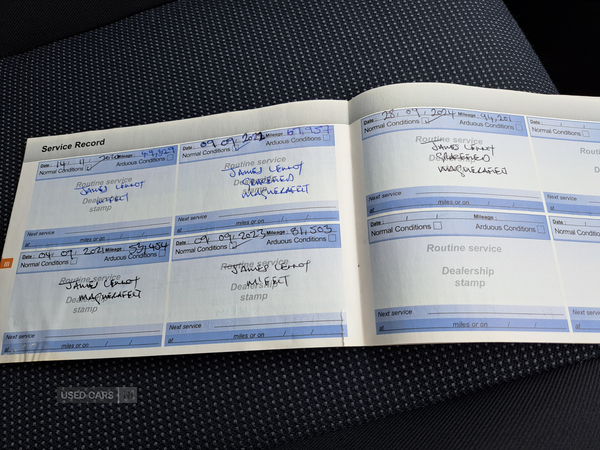 Service Record
Date: 14. 11. 2020 Mileage: 49,929
Normal Conditions Arduous Conditions
Routine service
JAMES LENNOX
Dealership
stamp
Next service
at miles or on / /
Date: 09. 09. 2022 Mileage: 67,957
Normal Conditions Arduous Conditions
Routine service
JAMES LENNOX
Dealership
MAGHERAFELT
stamp
Next service
at miles or on / /
Date: 04. 09. 2021 Mileage: 59,454
Normal Conditions Arduous Conditions
Routine service
JAMES LENNOX
Dealership
MAGHERAFELT
stamp
Next service
at miles or on / /
Date: 09. 09. 2023 Mileage: 81,503
Normal Conditions Arduous Conditions
Routine service
JAMES LENNOX
Dealership
M'FELT
stamp
Next service
at miles or on / /
Date: 28. 09. 2024 Mileage: 94,201
Normal Conditions Arduous Conditions
Routine service
JAMES LENNOX
Dealership
MAGHERAFELT
stamp
Next service
at miles or on / /
Date: / / Mileage:
Normal Conditions Arduous Conditions
Routine service
Dealership
stamp
Next service
at miles or on / /
Date: /
Normal Conditions
Next service
at
Date: /
Normal Conditions
Next service
at
USED CARS NI